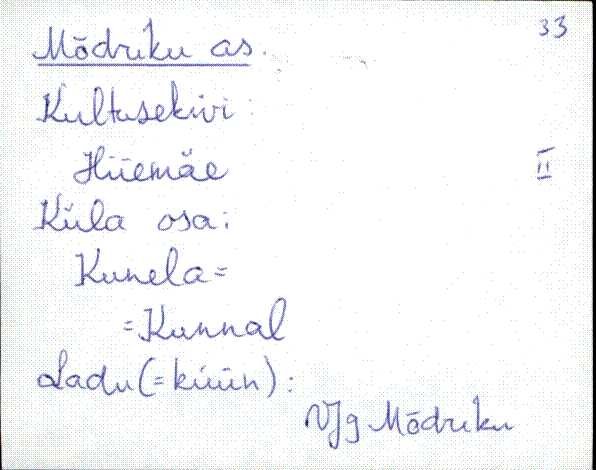 33
Mõdriku as.
Kultusekivi:
Hiiemäe
II
Küla osa:
Kunela=
=Kunnal
Ladu (=küün):
VJg Mõdriku